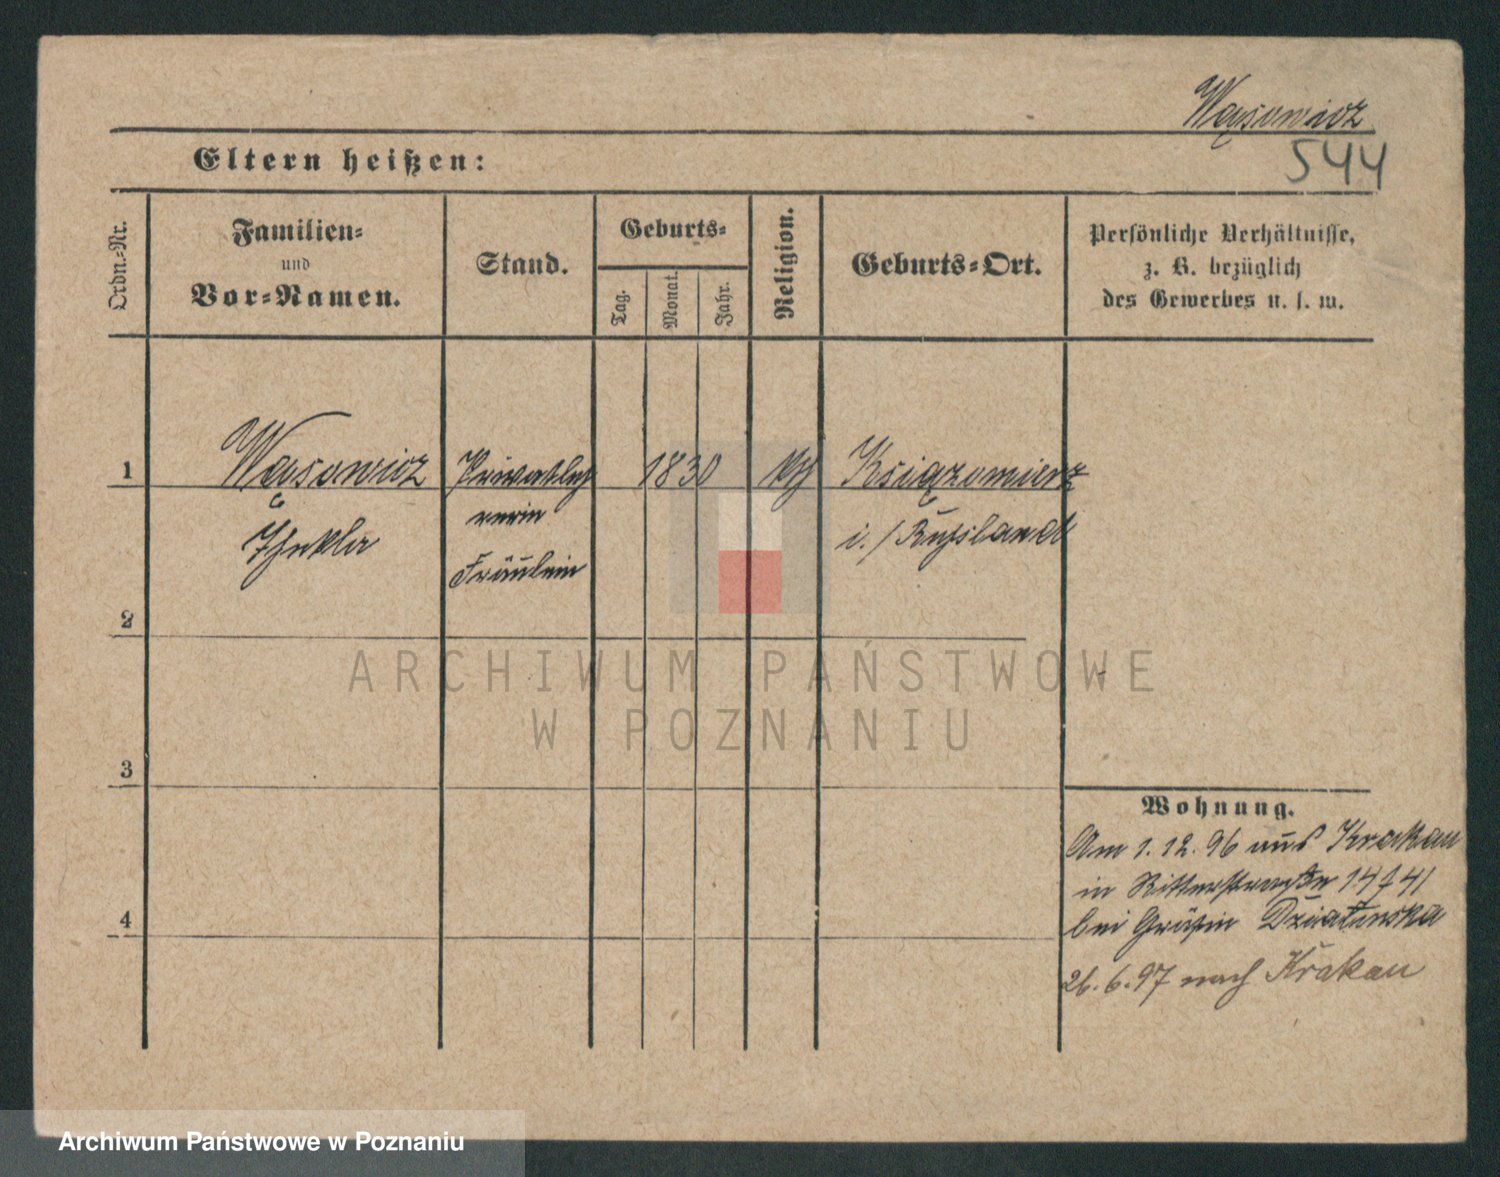 Wąsowicz
544
Eltern heißen:
Ordn.-Nr.
Familien-
und
Vor-Namen.
Stand.
Geburts-
Tag.
Monat.
Jahr.
Religion.
Geburts-Ort.
Persönliche Verhältnisse,
z. B. bezüglich
des Gewerbes u. s. w.
1
Wąsowicz
Thekla
Privatleh
rerin
Fräulein
1830
kth
Książomierz
i./Russland
2
ARCHIWUM PAŃSTWOWE
W POZNANIU
3
Wohnung.
Am 1.12.96 aus Krakau
in Ritterstraße
bei Gräfin Działinska
26.6.97 nach Krakau
4
Archiwum Państwowe w Poznaniu